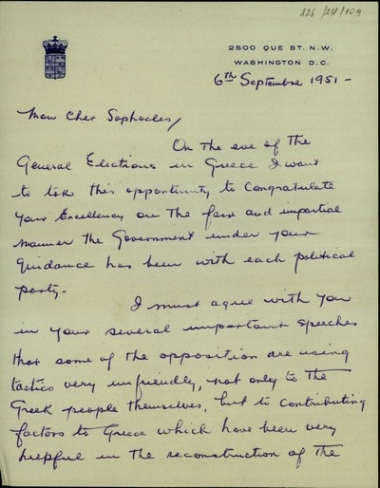 126/24/104
2500 QUE ST. N.W.
WASHINGTON D.C.
6th September 1951 -
Mon Cher Sophocles,
On the eve of the
General Elections in Greece I want
to take this opportunity to congratulate
your Excellency on the fair and impartial
manner the Government under your
guidance has been with each political
party.
I must agree with you
in your several important speeches
that some of the opposition are using
tactics very unfriendly, not only to the
Greek people themselves, but to contributing
factors to Greece which have been very
helpful in the reconstruction of the